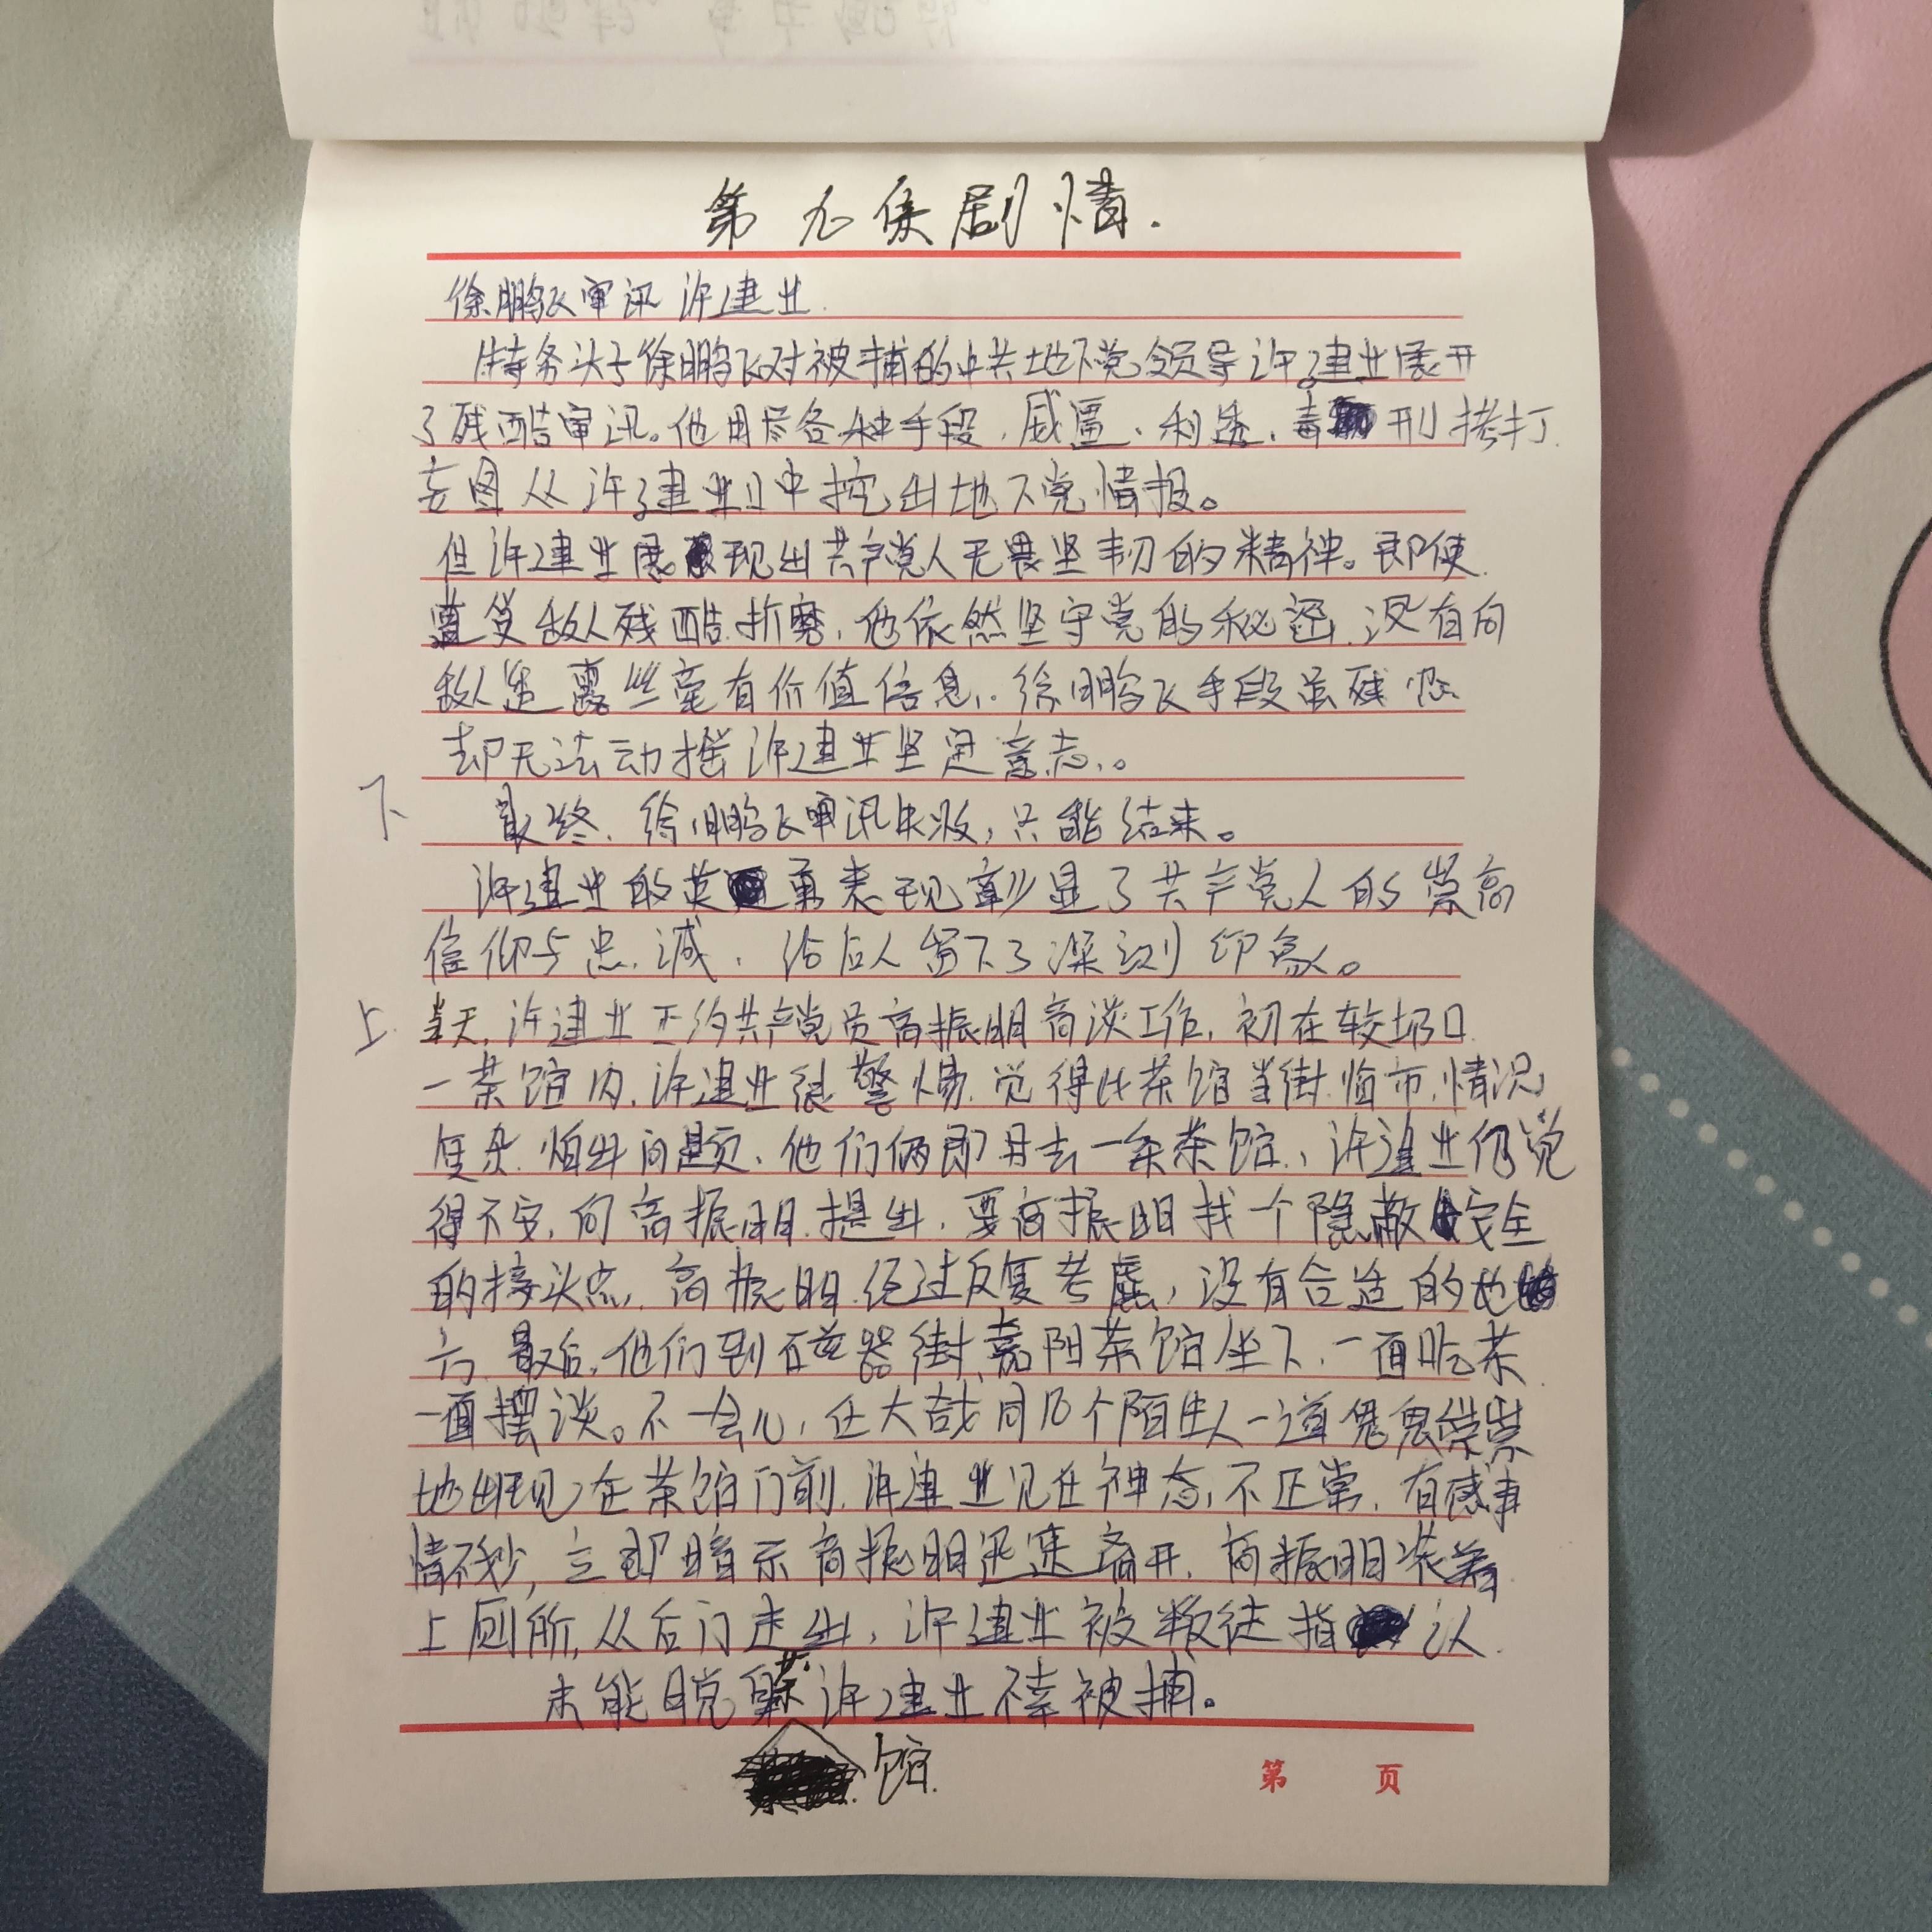 第九集剧情.
徐鹏飞审讯许建业.
特务头子徐鹏飞对被捕的中共地下党领导许建业展开
了残酷审讯。他用尽各种手段,威逼、利诱、毒刑拷打
妄图从许建业口中挖出地下党情报。
但许建业展现出共产党人无畏坚韧的精神。即使
遭受敌人残酷折磨,他依然坚守党的秘密,没有向
敌人透露丝毫有价值信息,徐鹏飞手段虽残忍
却无法动摇许建业坚定意志。
下 最终,徐鹏飞审讯失败,只能结束。
许建业的英勇表现彰显了共产党人的崇高
信仰与忠诚,给后人留下了深刻印象。
上 当天,许建业正约共产党员高振明商谈工作,初在较场口
一茶馆内,许建业很警惕,觉得此茶馆当街临市,情况
复杂,怕出问题,他们俩即另去一条茶馆,许建业仍觉
得不安,向高振明提出,要高振明找一个隐蔽安全
的接头点,高振明经过反复考虑,没有合适的地
方,最后,他们到磁器街嘉阳茶馆坐下,一面吃茶
一面摆谈。不一会儿,任大哉同几个陌生人一道鬼鬼祟祟
地出现在茶馆门前,许建业见任神态不正常,有感事
情不妙,立即暗示高振明迅速离开,高振明装着
上厕所,从后门走出,许建业被叛徒指认
未能脱身,许建业不幸被捕。
馆.
第 页